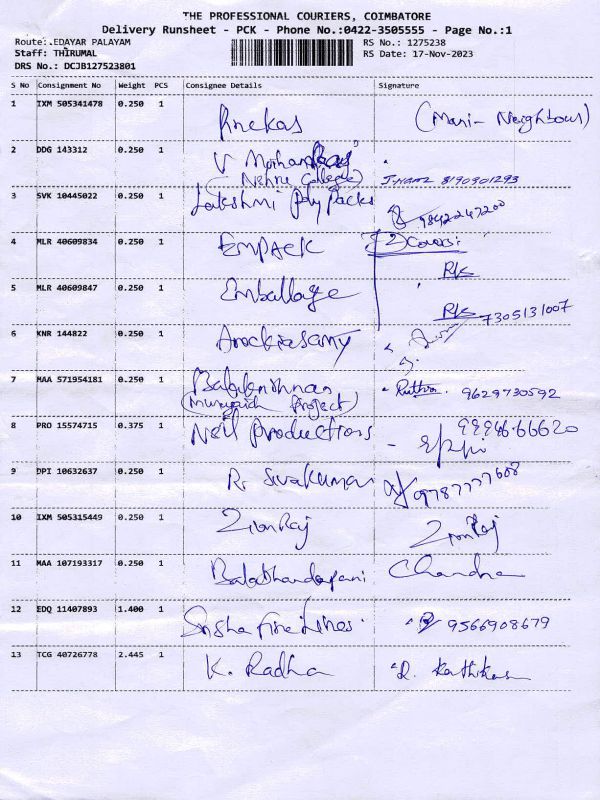 THE PROFESSIONAL COURIERS, COIMBATORE
Delivery Runsheet - PCK - Phone No.:0422-3505555 - Page No.:1
Route:.EDAYAR PALAYAM RS No.: 1275238
Staff: THIRUMAL RS Date: 17-Nov-2023
DRS No.: DCJB127523801
S No Consignment No Weight PCS Consignee Details Signature
1 IXM 505341478 0.250 1 (Mani- Neighbour)
2 DDG 143312 0.250 1 V
(Nehru College) 8190301293
3 SVK 10445022 0.250 1 Lakshmi Poly Packs 9842247200
4 MLR 40609834 0.250 1 EMPACK (2) Covers:
RK
5 MLR 40609847 0.250 1 Emballage RK 7305131007
6 KNR 144822 0.250 1 Arockiasamy
7 MAA 571954181 0.250 1 Balakrishnan Ruthra. 9629730592
( Project)
8 PRO 15574715 0.375 1 Neil Productions -
9 DPI 10632637 0.250 1 R. Sivakumar
10 IXM 505315449 0.250 1 Zion Raj Zion Raj
11 MAA 107193317 0.250 1 Balathandapani Chandra
12 EDQ 11407893 1.400 1 Fine Lines 9566908679
13 TCG 40726778 2.445 1 K. Radha R.